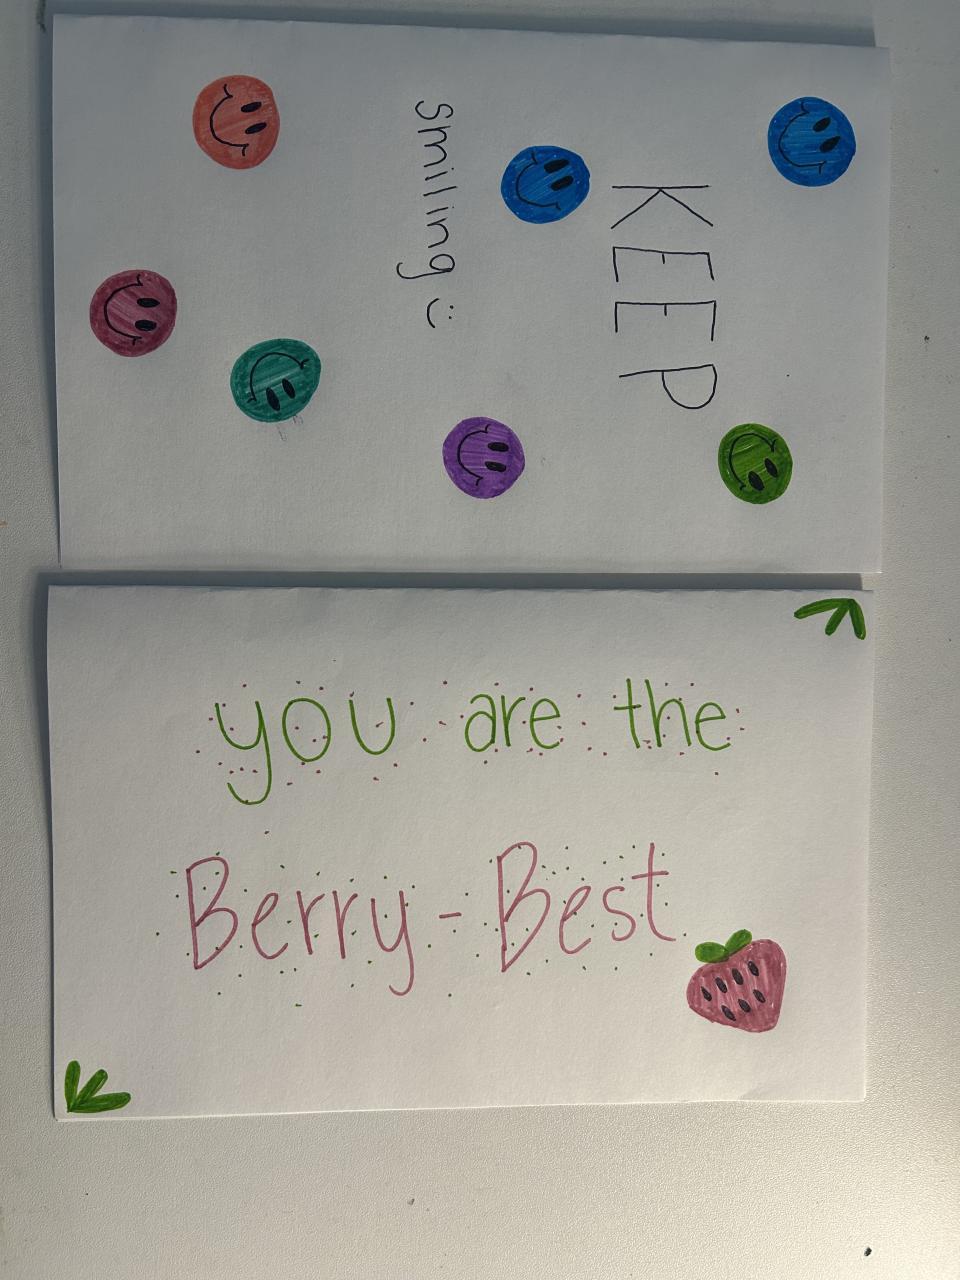 KEEP
smiling :)
you are the
Berry-Best